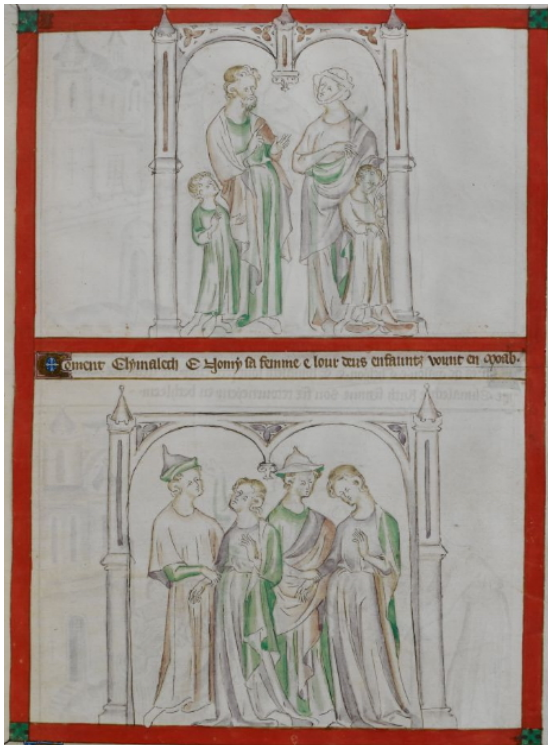 Coment Elymalech E Nomy sa femme e lour deus enfauntz vount en moab.